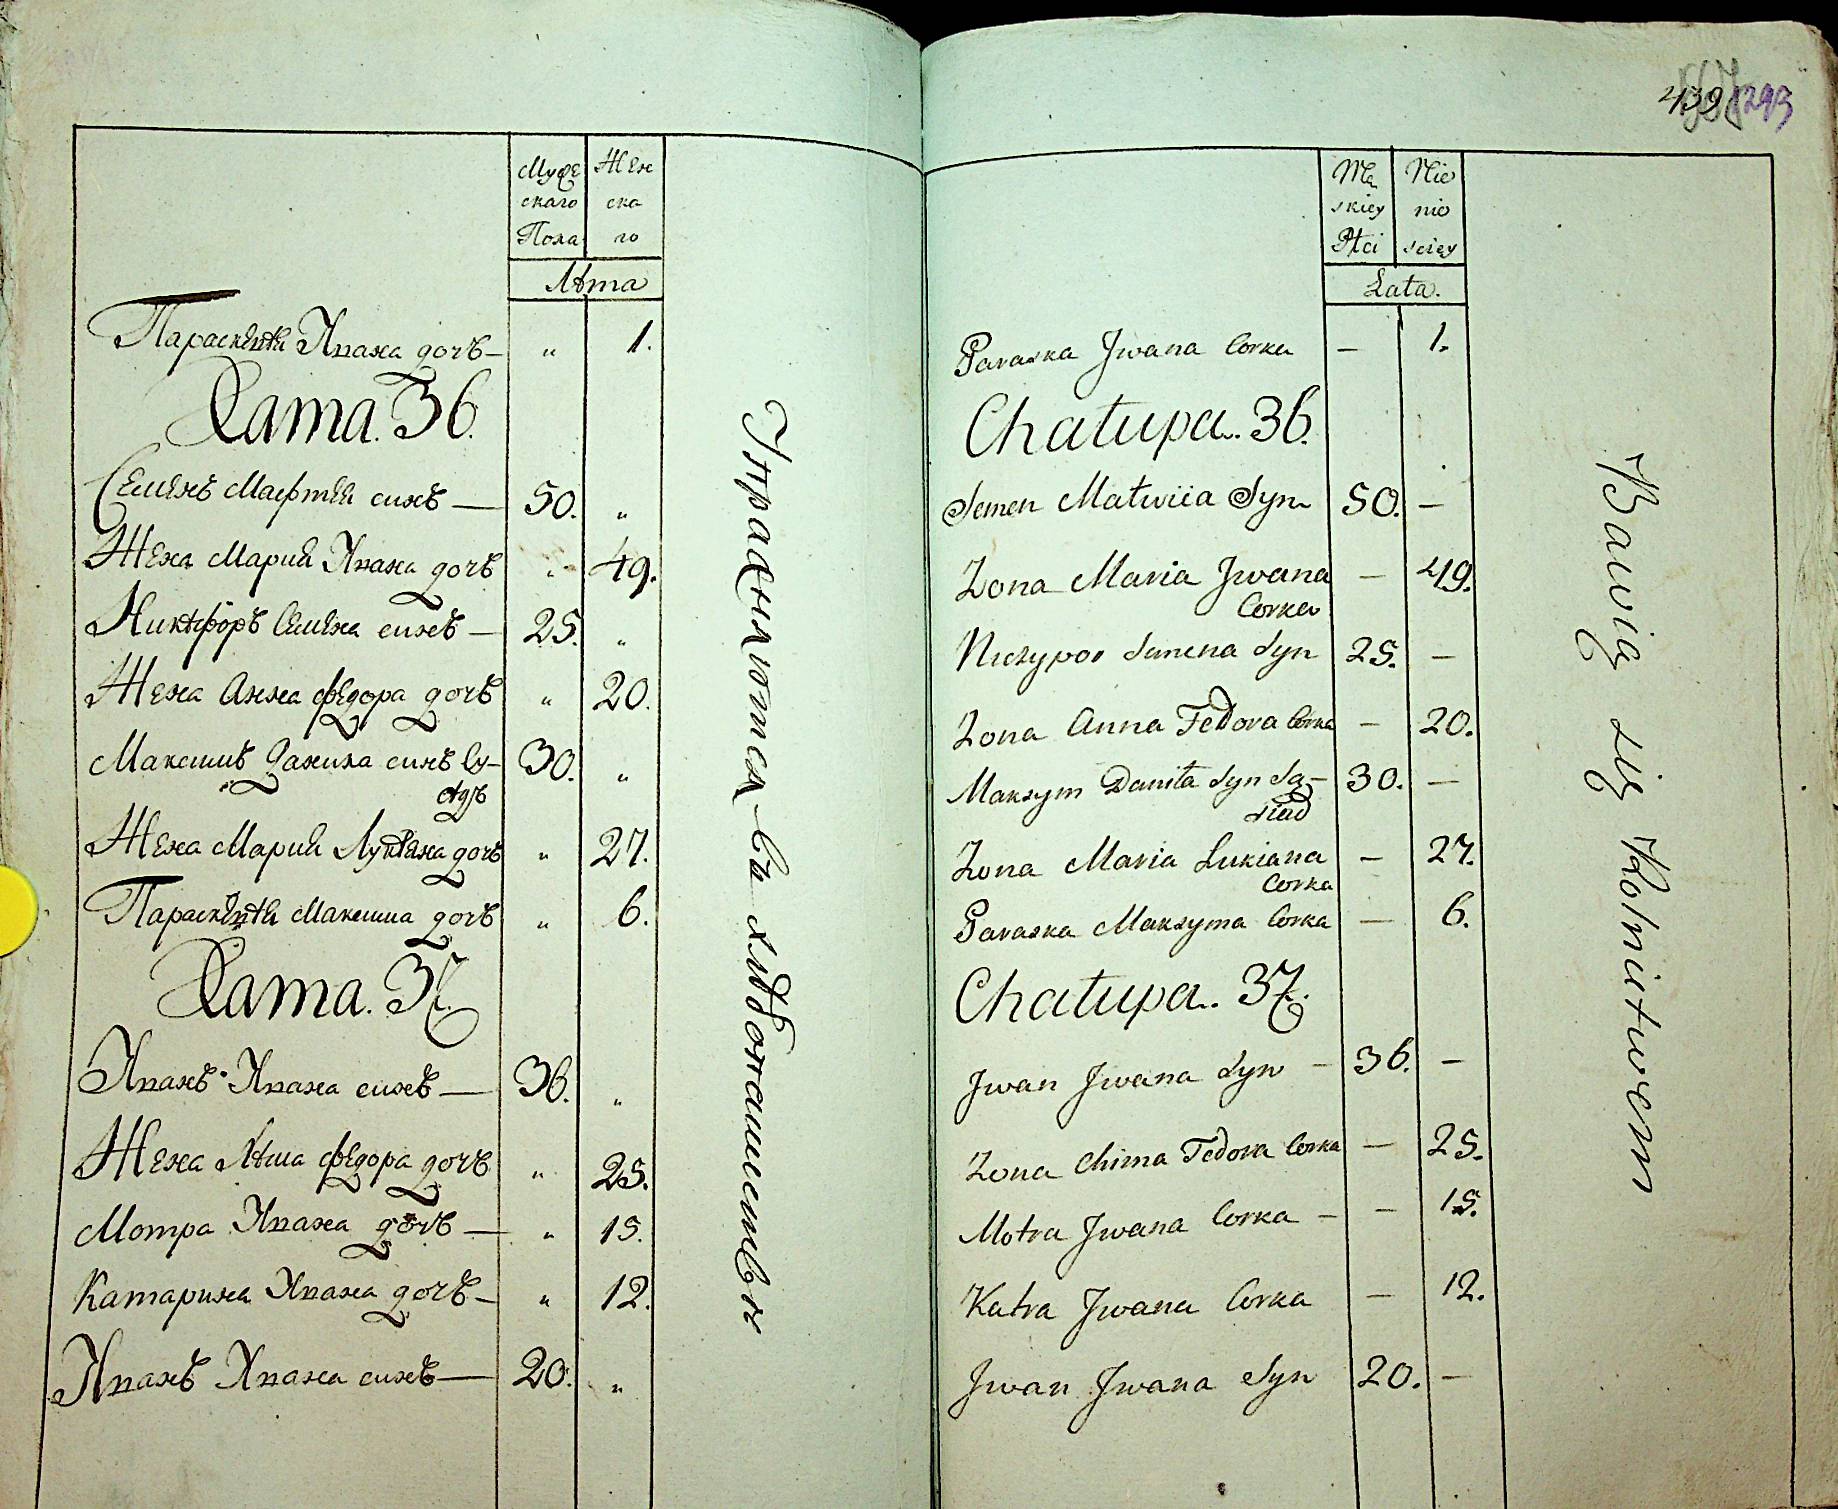 Муже Жен
скаго ска
Пола го
Лѣта
Параскевія Ивана дочъ — „ 1.
Хата. 36.
Семенъ Мафтея синъ — 50. „
Жена Мария Ивана дочъ „ 49.
Никифоръ Семена синъ — 25. „
Жена Анна Федора дочъ „ 20.
Максимъ Данила синъ Су- 30. „
сѣдъ
Жена Мария Лукіяна дочъ „ 27.
Параскевія Максима дочъ „ 6.
Хата. 37.
Иванъ Ивана синъ — 36. „
Жена Хима Федора дочъ „ 25.
Мотра Ивана дочъ — „ 15.
Катарина Ивана дочъ — „ 12.
Иванъ Ивана синъ — 20. „
Упражняются въ хлѣбопашествѣ
439 293
Mę Nie
skiey wie
Płci sciey
Lata.
Paraska Jwana Corka — 1.
Chałupa. 36.
Semen Matwiia Syn 50. —
Zona Maria Jwana — 49.
Corka
Niczypor Semena Syn 25. —
Zona Anna Fedora Corka — 20.
Maksym Daniła Syn Są- 30. —
siad
Zona Maria Lukiana — 27.
Corka
Paraska Maksyma Corka — 6.
Chałupa. 37.
Jwan Jwana Syn — 36. —
Zona Chima Fedora Corka — 25.
Motra Jwana Corka — — 15.
Katra Jwana Corka — 12.
Jwan Jwana Syn 20. —
Bawią się Rolnictwem